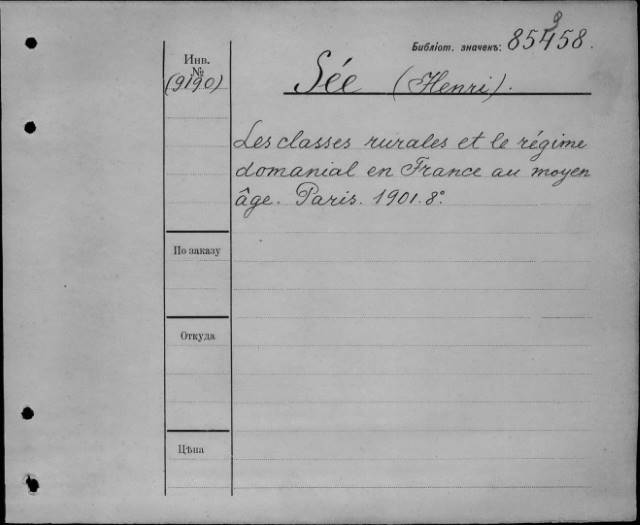 Библіот. значекъ: 85458.
9
Инв.
№
(9190)
Sée (Henri).
Les classes rurales et le régime
domanial en France au moyen
âge. Paris. 1901. 8º.
По заказу
Откуда
Цѣна